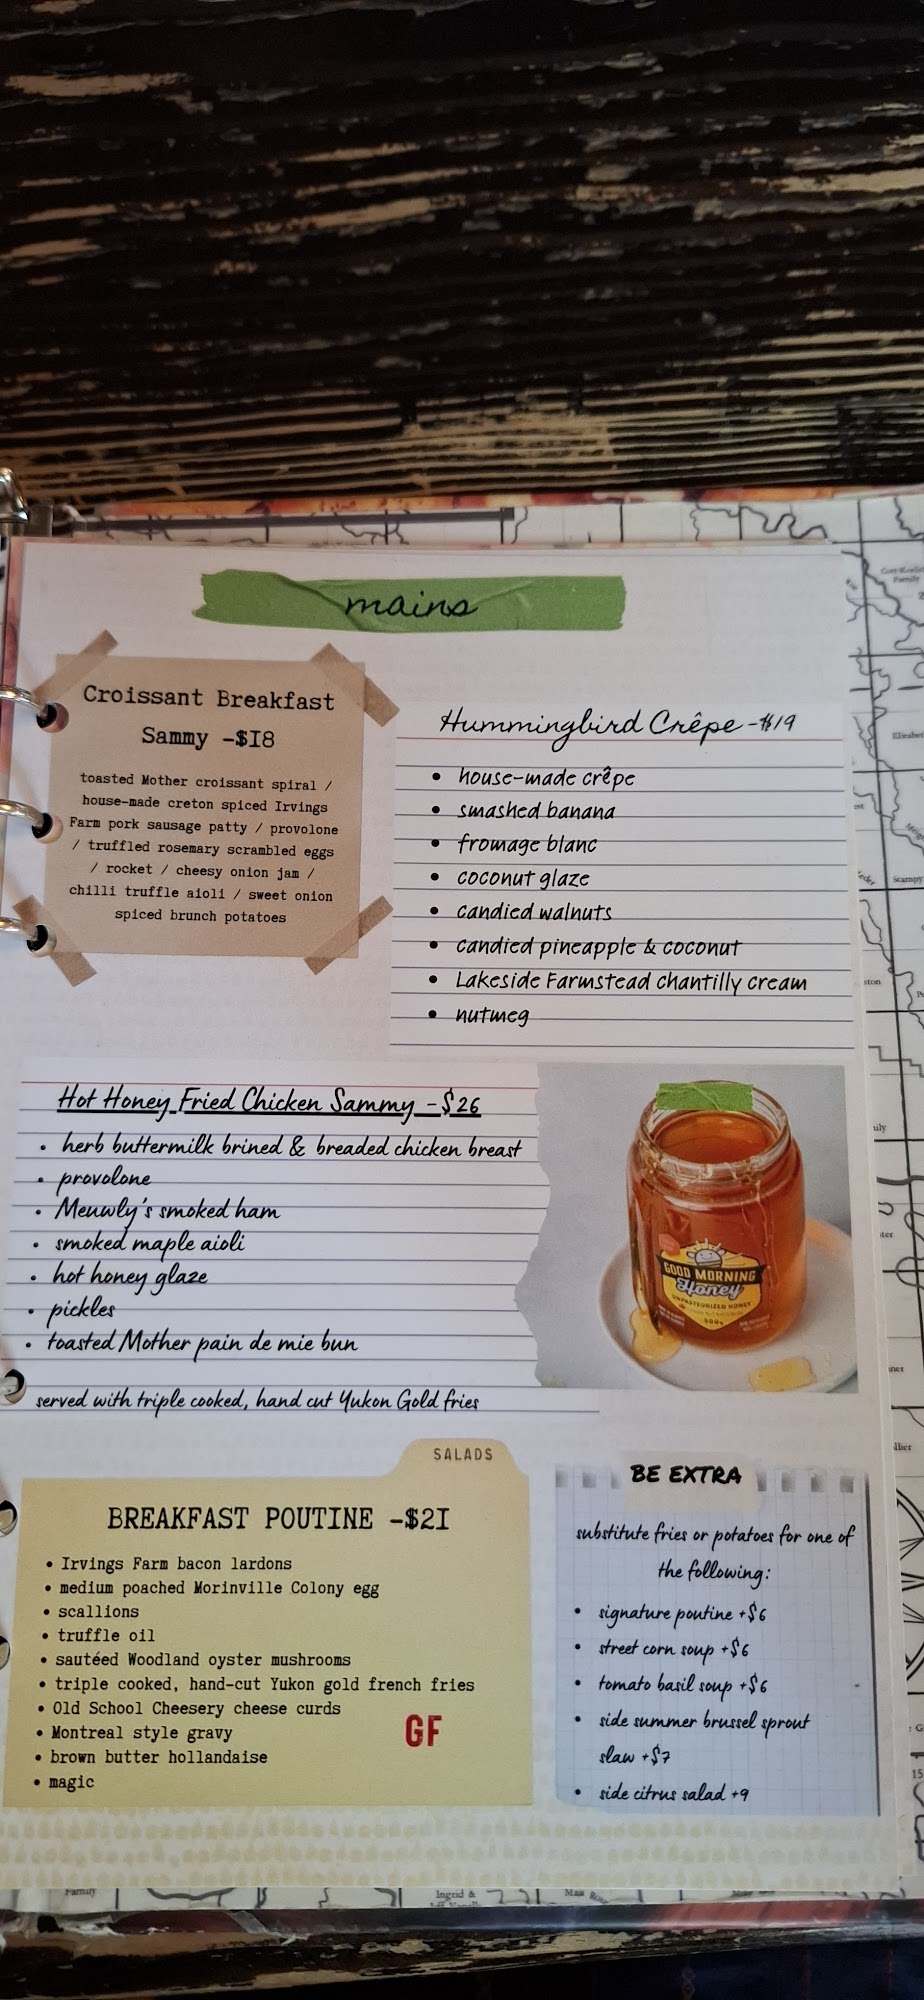 mains
Croissant Breakfast
Sammy -$18
toasted Mother croissant spiral /
house-made creton spiced Irvings
Farm pork sausage patty / provolone
/ truffled rosemary scrambled eggs
/ rocket / cheesy onion jam /
chilli truffle aioli / sweet onion
spiced brunch potatoes
Hummingbird Crêpe -$19
• house-made crêpe
• smashed banana
• fromage blanc
• coconut glaze
• candied walnuts
• candied pineapple & coconut
• Lakeside Farmstead chantilly cream
• nutmeg
Hot Honey Fried Chicken Sammy -$26
• herb buttermilk brined & breaded chicken breast
• provolone
• Meuwly's smoked ham
• smoked maple aioli
• hot honey glaze
• pickles
• toasted Mother pain de mie bun
served with triple cooked, hand cut Yukon Gold fries
GOOD MORNING
Honey
UNPASTEURIZED HONEY
500g
SALADS
BREAKFAST POUTINE -$21
• Irvings Farm bacon lardons
• medium poached Morinville Colony egg
• scallions
• truffle oil
• sautéed Woodland oyster mushrooms
• triple cooked, hand-cut Yukon gold french fries
• Old School Cheesery cheese curds
• Montreal style gravy
• brown butter hollandaise
• magic
GF
BE EXTRA
substitute fries or potatoes for one of
the following:
• signature poutine +$6
• street corn soup +$6
• tomato basil soup +$6
• side summer brussel sprout
slaw +$7
• side citrus salad +9
Family
Ingrid &